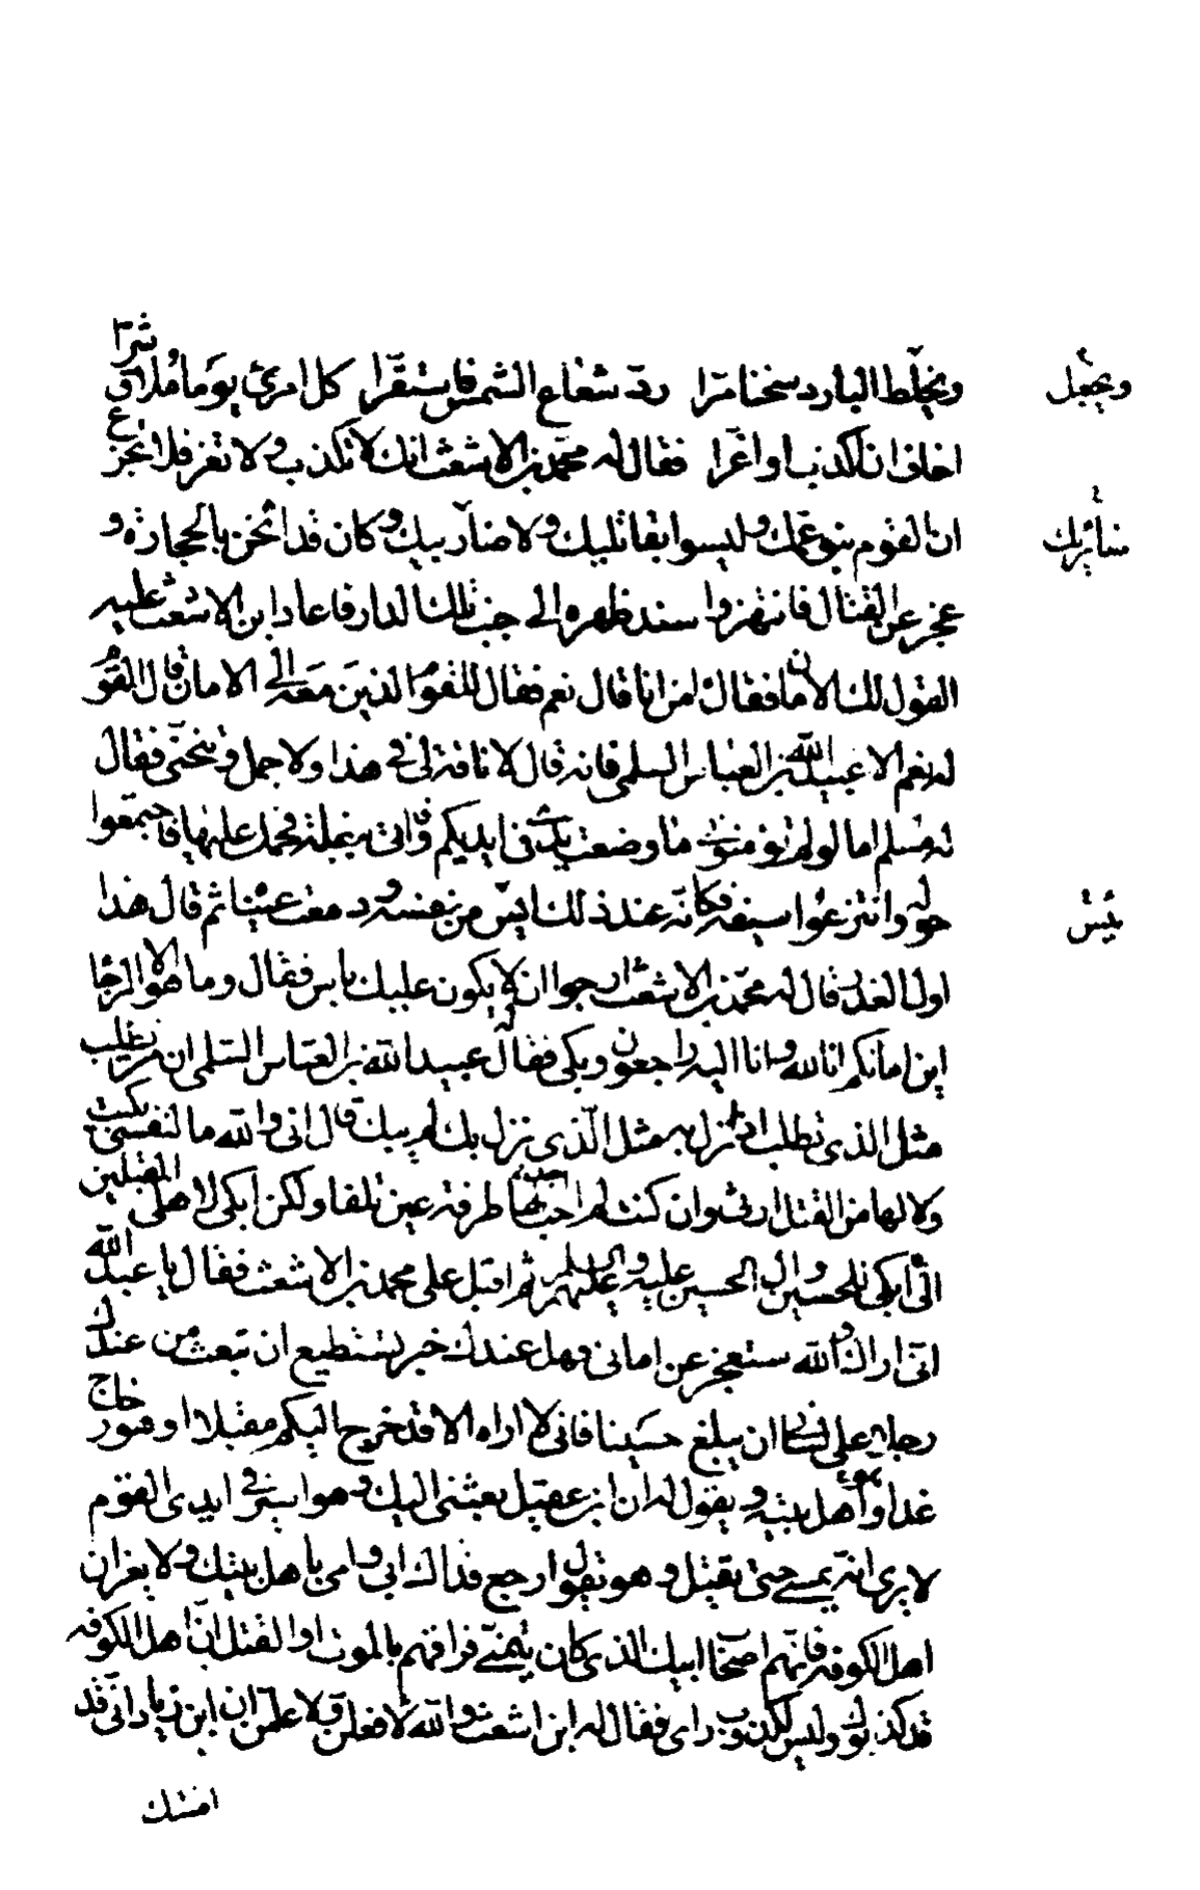 ويخلط البارد سخنا مرّا ردّ شعاع الشمس فاستقرّا كل امرئ يوما ملاق شرّا
ويجعل
اخاف ان اكذب او اغرّا فقال له محمّد بن الاشعث انك لا تكذب ولا تغر فلا تجزع
ان القوم بنو عمك وليسوا بقاتليك ولا ضاربيك وكان قد اثخن بالحجارة و
ضائريك
عجز عن القتال فانتهزوا سند ظهره الى جنب تلك الدار فاعاد ابن الاشعث عليه
القول لك الامان فقال امن انا قال نعم فقال للقوم الذين معه الى الامان قال القوم
له نعم الا عبيد الله بن العباس السلمي فانه قال لا ناقة لي في هذا ولا جمل وتنحّى فقال
له مسلم اما لو لم تؤمنوني ما وضعت يدي في ايديكم واتي ببغلة فحمل عليها فاجتمعوا
حوله وانتزعوا سيفه فكانّه عند ذلك ايس من نفسه ودمعت عيناه ثم قال هذا
يئس
اول الغدر قال له محمّد بن الاشعث ارجوا ان لا يكون عليك باس فقال وما هو الا الرجا
اين امانكم انا لله وانا اليه راجعون وبكى فقال له عبيد الله بن العباس السلمي ان من يطلب
مثل الذي تطلب اذا نزل به مثل الذي نزل بك لم يبك قال اني والله ما لنفسي بكيت
ولا لها من القتل ارثي وان كنت لم احب لها طرفة عين تلفا ولكن ابكي لاهلي المقبلين
انّي ابكي للحسين وال الحسين عليه وعليهم السلم ثم اقبل على محمد بن الاشعث فقال يا عبد الله
انّي اراك والله ستعجز عن اماني فهل عندك خير تستطيع ان تبعث من عندك
رجلا على لساني ان يبلغ حسينا فاني لا اراه الا قد خرج اليكم مقبلا او هو خارج
غدا واهل بيته ويقول له ان ابن عقيل بعثني اليك وهو اسير في ايدي القوم
لا يرى انه يمسي حتى يقتل وهو يقول ارجع فداك ابي وامي باهل بيتك ولا يغران
اهل الكوفة فانهم اصحاب ابيك الذي كان يتمنّى فراقهم بالموت او القتل انّ اهل الكوفه
قد كذبوك وليس لكذوب راى فقال له ابن اشعث والله لافعلن ولاعلمن ابن زياد انّي قد
امنتك